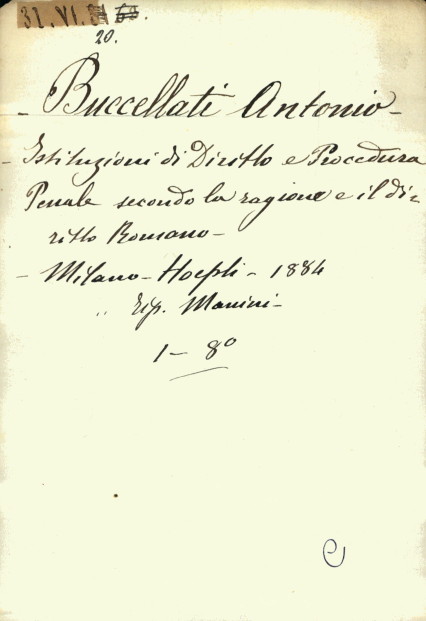 31.VI.
20.
- Buccellati Antonio -
- Istituzioni di Diritto e Procedura
Penale secondo la ragione e il di=
ritto Romano -
- Milano - Hoepli - 1884
" Tip. Manini -
1 - 8º
e